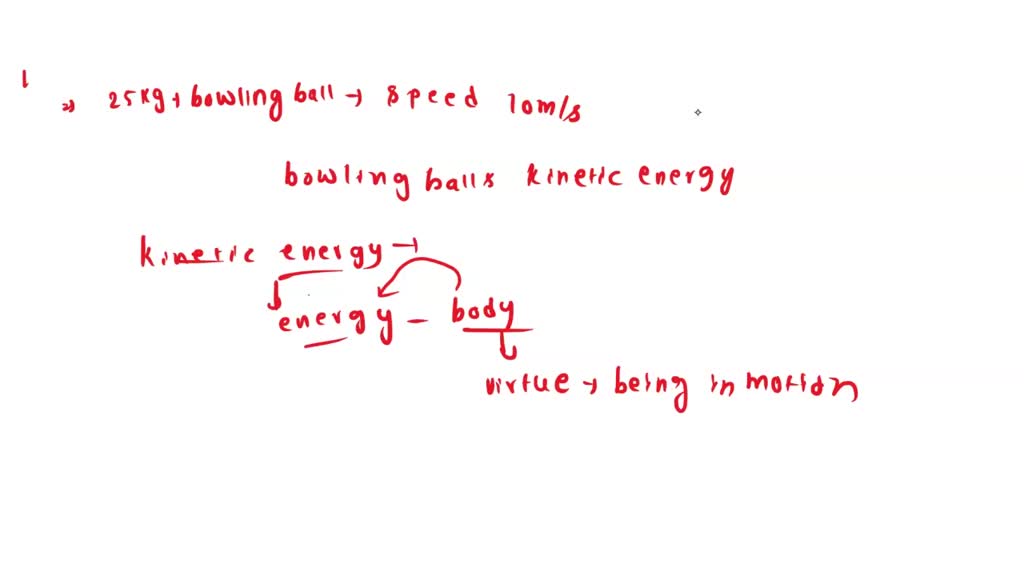 1
⇒ 25kg → bowling ball → speed 10m/s
bowling balls kinetic energy
kinetic energy →
energy - body
virtue → being in motion